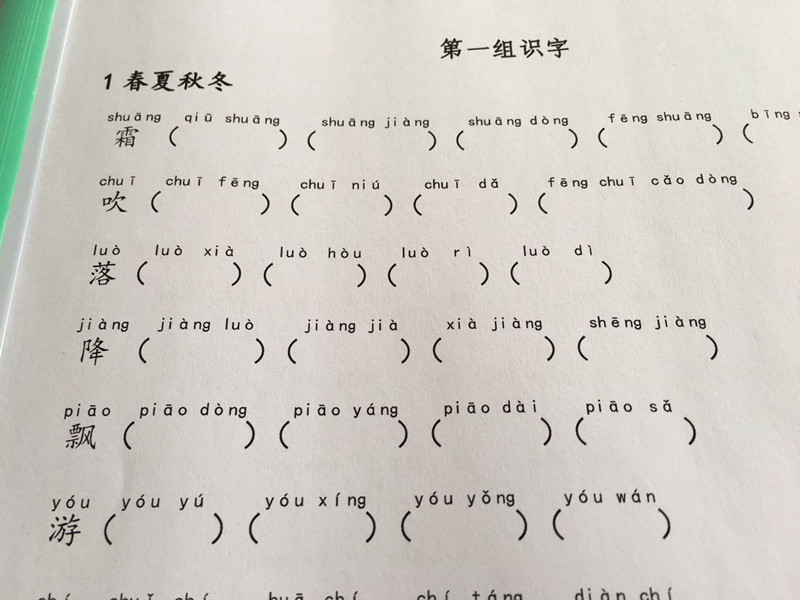 第一组识字
1 春夏秋冬
shuāng qiū shuāng shuāng jiàng shuāng dòng fēng shuāng bīng
霜 ( ) ( ) ( ) ( ) (
chuī chuī fēng chuī niú chuī dǎ fēng chuī cǎo dòng
吹 ( ) ( ) ( ) ( )
luò luò xià luò hòu luò rì luò dì
落 ( ) ( ) ( ) ( )
jiàng jiàng luò jiàng jià xià jiàng shēng jiàng
降 ( ) ( ) ( ) ( )
piāo piāo dòng piāo yáng piāo dài piāo sǎ
飘 ( ) ( ) ( ) ( )
yóu yóu yú yóu xíng yóu yǒng yóu wán
游 ( ) ( ) ( ) ( )
chí chí huā chí chí táng diàn chí